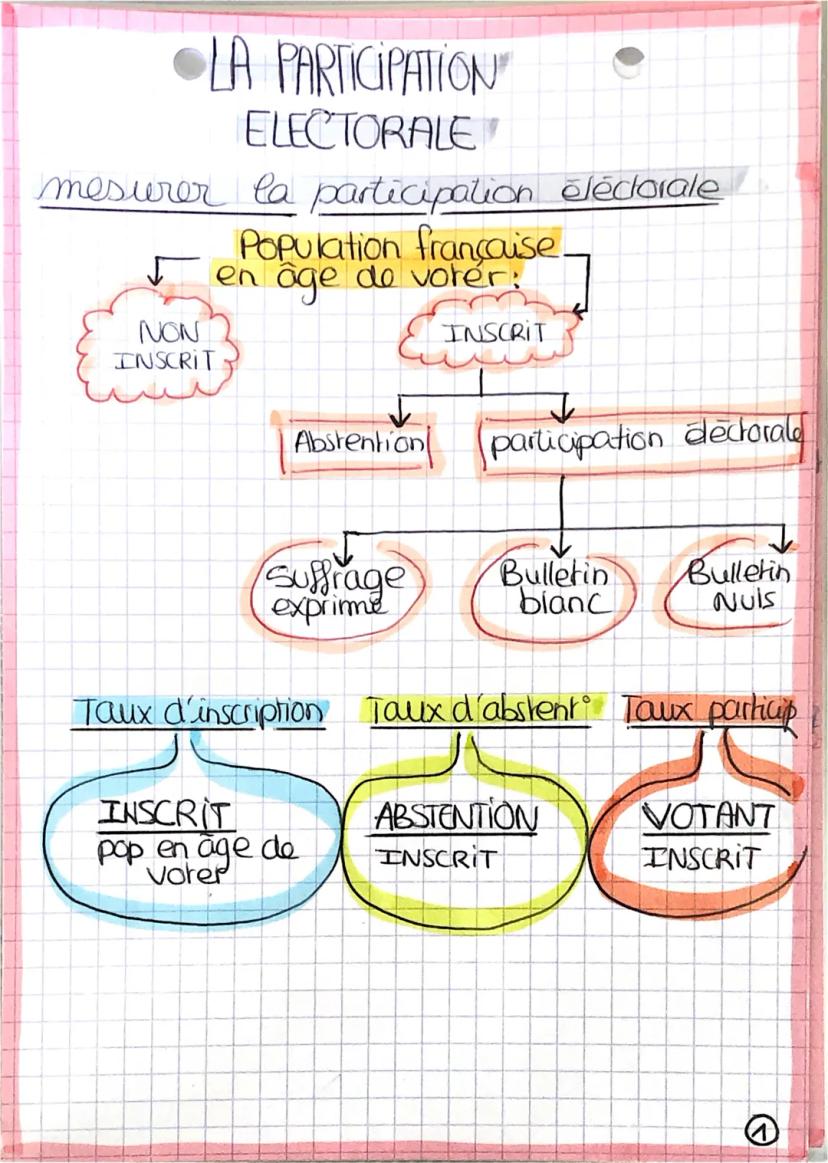 LA PARTICIPATION
ELECTORALE
mesurer la participation éléctorale
Population française
en âge de voter :
NON
INSCRIT
INSCRIT
Abstention
participation éléctorale
Suffrage
exprimé
Bulletin
blanc
Bulletin
Nuls
Taux d'inscription
Taux d'abstent°
Taux particip
INSCRIT
pop en âge de
voter
ABSTENTION
INSCRIT
VOTANT
INSCRIT
1